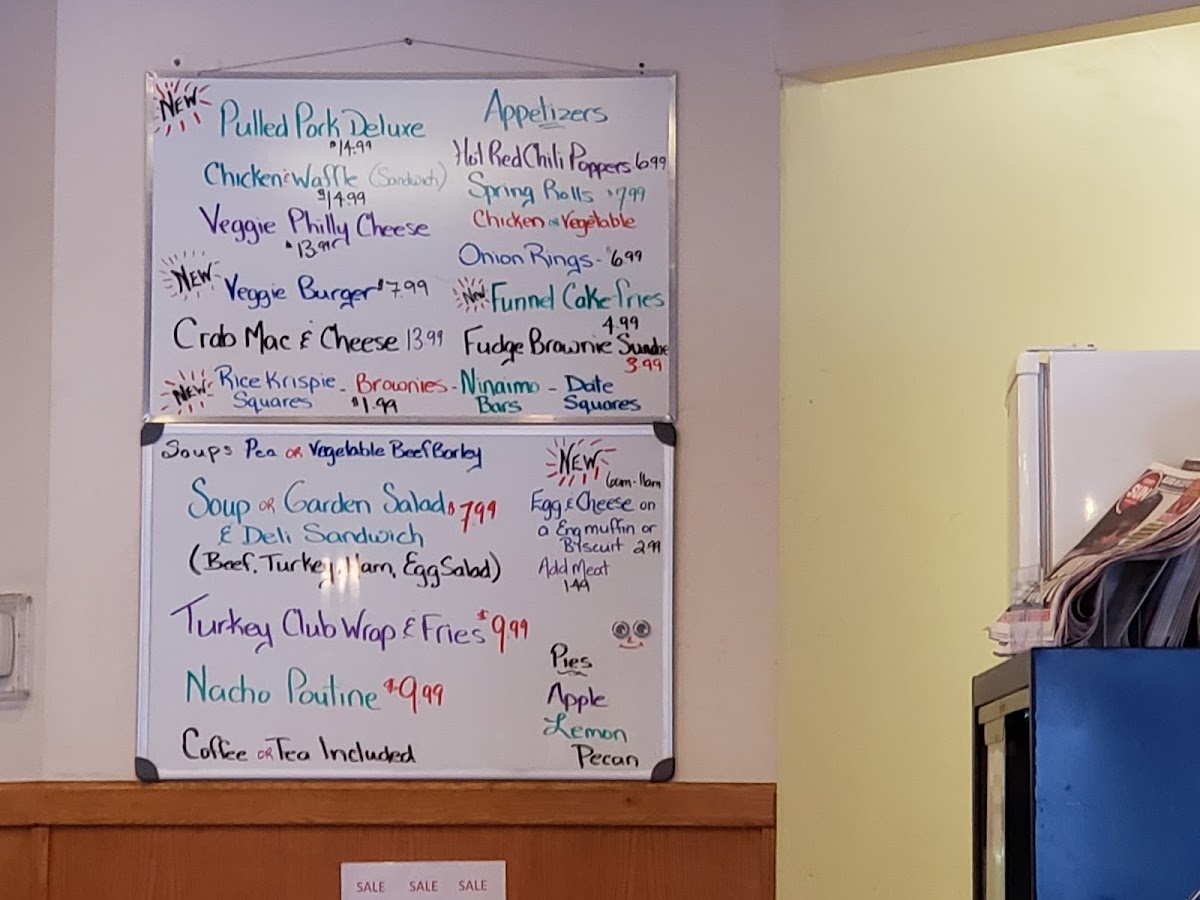 NEW
Pulled Pork Deluxe
$14.99
Chicken & Waffle (Sandwich)
$14.99
Veggie Philly Cheese
$13.99
NEW
Veggie Burger $7.99
Crab Mac & Cheese 13.99
Appetizers
Hot Red Chili Poppers 6.99
Spring Rolls $7.99
Chicken or Vegetable
Onion Rings - $6.99
New Funnel Cake fries
4.99
Fudge Brownie Sundae
3.99
NEW Rice Krispie - Brownies - Ninaimo - Date
Squares $1.99 Bars Squares
Soups Pea or Vegetable Beef Barley
Soup or Garden Salad $7.99
& Deli Sandwich
(Beef, Turkey, Ham, Egg Salad)
Turkey Club Wrap & Fries $9.99
Nacho Poutine $9.99
Coffee or Tea Included
NEW
6am-11am
Egg & Cheese on
a Eng muffin or
Biscuit 2.99
Add Meat
1.49
Pies
Apple
Lemon
Pecan
SALE SALE SALE
SUN